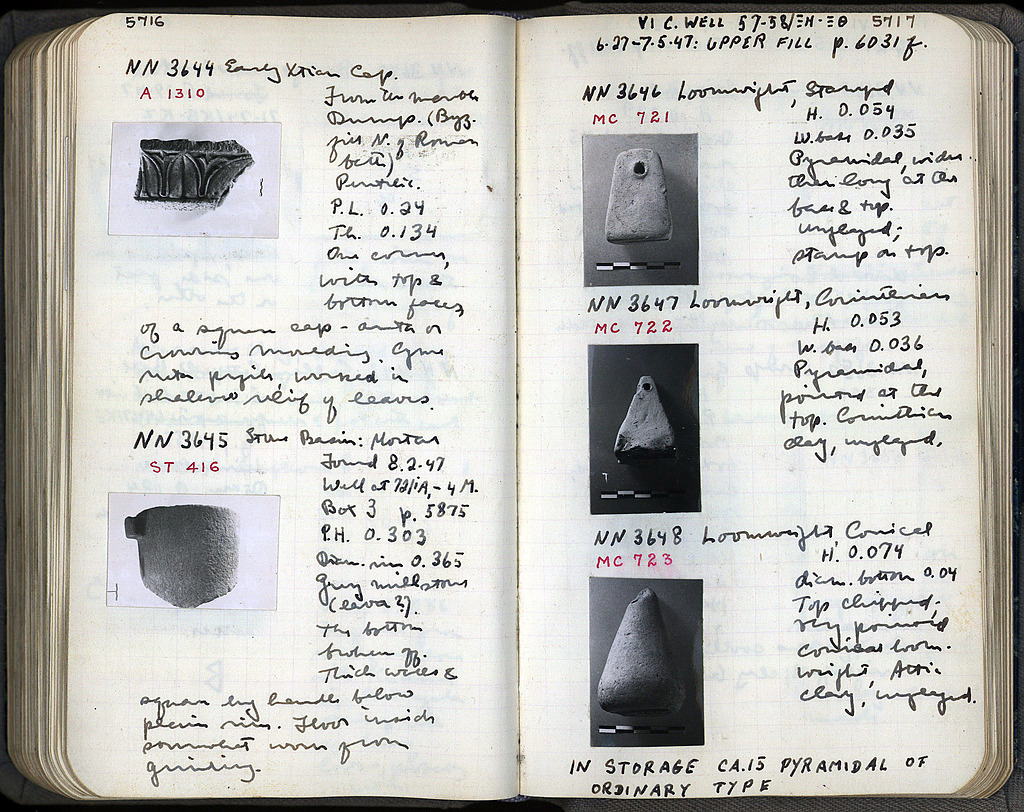 5716
NN 3644 Early Xtian Cap.
A 1310
From the marble
Dump. (Byz.
fill N. of Roman
bath)
Pentelic.
P.L. 0.24
Th. 0.134
One corner,
with top &
bottom faces
of a square cap - anta or
crowning moulding.
shallow relief of leaves.
NN 3645 Stone Basin: Mortar
ST 416
Found 8.2.47
Well at 72/IA, - 4 M.
Box 3 p. 5875
P.H. 0.303
Diam. rim 0.365
Grey millstone
(lava?).
The bottom
broken off.
Thick walls &
square lug handle below
plain rim. Floor inside
somewhat worn from
grinding.
VI C. WELL 57-58/ΞΗ-ΞΘ 5717
6.27-7.5.47: UPPER FILL p. 6031 f.
NN 3646 Loomweight, Stamped
MC 721
H. 0.054
W. base 0.035
Pyramidal, wider
than long at the
base & top.
Unglazed;
stamp on top.
NN 3647 Loomweight, Corinthian
MC 722
H. 0.053
W. base 0.036
Pyramidal,
pointed at the
top. Corinthian
clay, unglazed.
NN 3648 Loomweight, Conical
MC 723
H. 0.074
diam. bottom 0.04
Top chipped;
very pointed
conical loom-
weight, Attic
clay, unglazed.
IN STORAGE CA. 15 PYRAMIDAL OF
ORDINARY TYPE